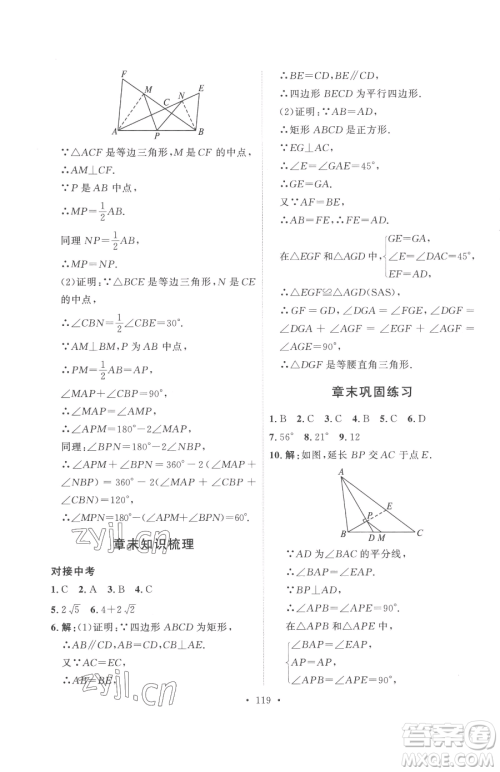 F
M
N
E
C
A
P
B
∵△ACF 是等边三角形,M 是 CF 的中点,
∴AM⊥CF.
∵P 是 AB 中点,
∴MP=1/2AB,
同理 NP=1/2AB,
∴MP=PN.
(2)证明:∵△BCE 是等边三角形,N 是 CE
的中点,
∴∠CBN=1/2∠CBE=30°.
∵AM⊥BM,P 是 AB 中点,
∴PM=1/2AB=AP,
∠MAP+∠CBP=90°,
∴∠MAP=∠AMP,
∴∠APM=180°-2∠MAP.
同理:∠BPN=180°-2∠NBP,
∴∠APM+∠BPN=360°-2(∠MAP+
∠NBP)=360°-2(∠MAP+∠CBP+
∠CBN)=120°,
∴∠MPN=180°-(∠APM+∠BPN)=60°.
章末知识梳理
对接中考
1. C 2. A 3. B 4. C
5. 2√5 6. 4+2√2
6. 解:(1)证明:∵四边形 ABCD 为矩形,
∴AB∥CD,AB=CD,CB⊥AE.
又∵AC=EC,
∴AB=BE,
∴BE=CD,BE∥CD,
∴四边形 BECD 为平行四边形.
(2)证明:∵AB=AD,
∴矩形 ABCD 是正方形.
∵EG⊥AC,
∴∠E=∠GAE=45°,
∴GE=GA.
又∵AF=BE,
∴AB=FE,
∴FE=AD.
在△EGF 和△AGD 中,
GE=GA,
∠E=∠DAC=45°,
EF=AD,
∴△EGF≌△AGD(SAS),
∴GF=GD,∠DGA=∠FGE,
∴∠DGF=∠EGA=90°,
∴△DGF 是等腰直角三角形.
章末巩固练习
1. B 2. C 3. C 4. B 5. C 6. D
7. 56° 8. 21° 9. 12
10. 解:如图,延长 BP 交 AC 于点 E.
A
E
P
B
D M
C
∵AD 为∠BAC 的平分线,
∴∠BAP=∠EAP.
∵BP⊥AD,
∴∠APB=∠APE=90°.
在△ABP 和△AEP 中,
∠BAP=∠EAP,
AP=AP,
∠APB=∠APE=90°,
• 119 •
zyjl.cn
zyjl.cn
答案圈
MXQE.COM